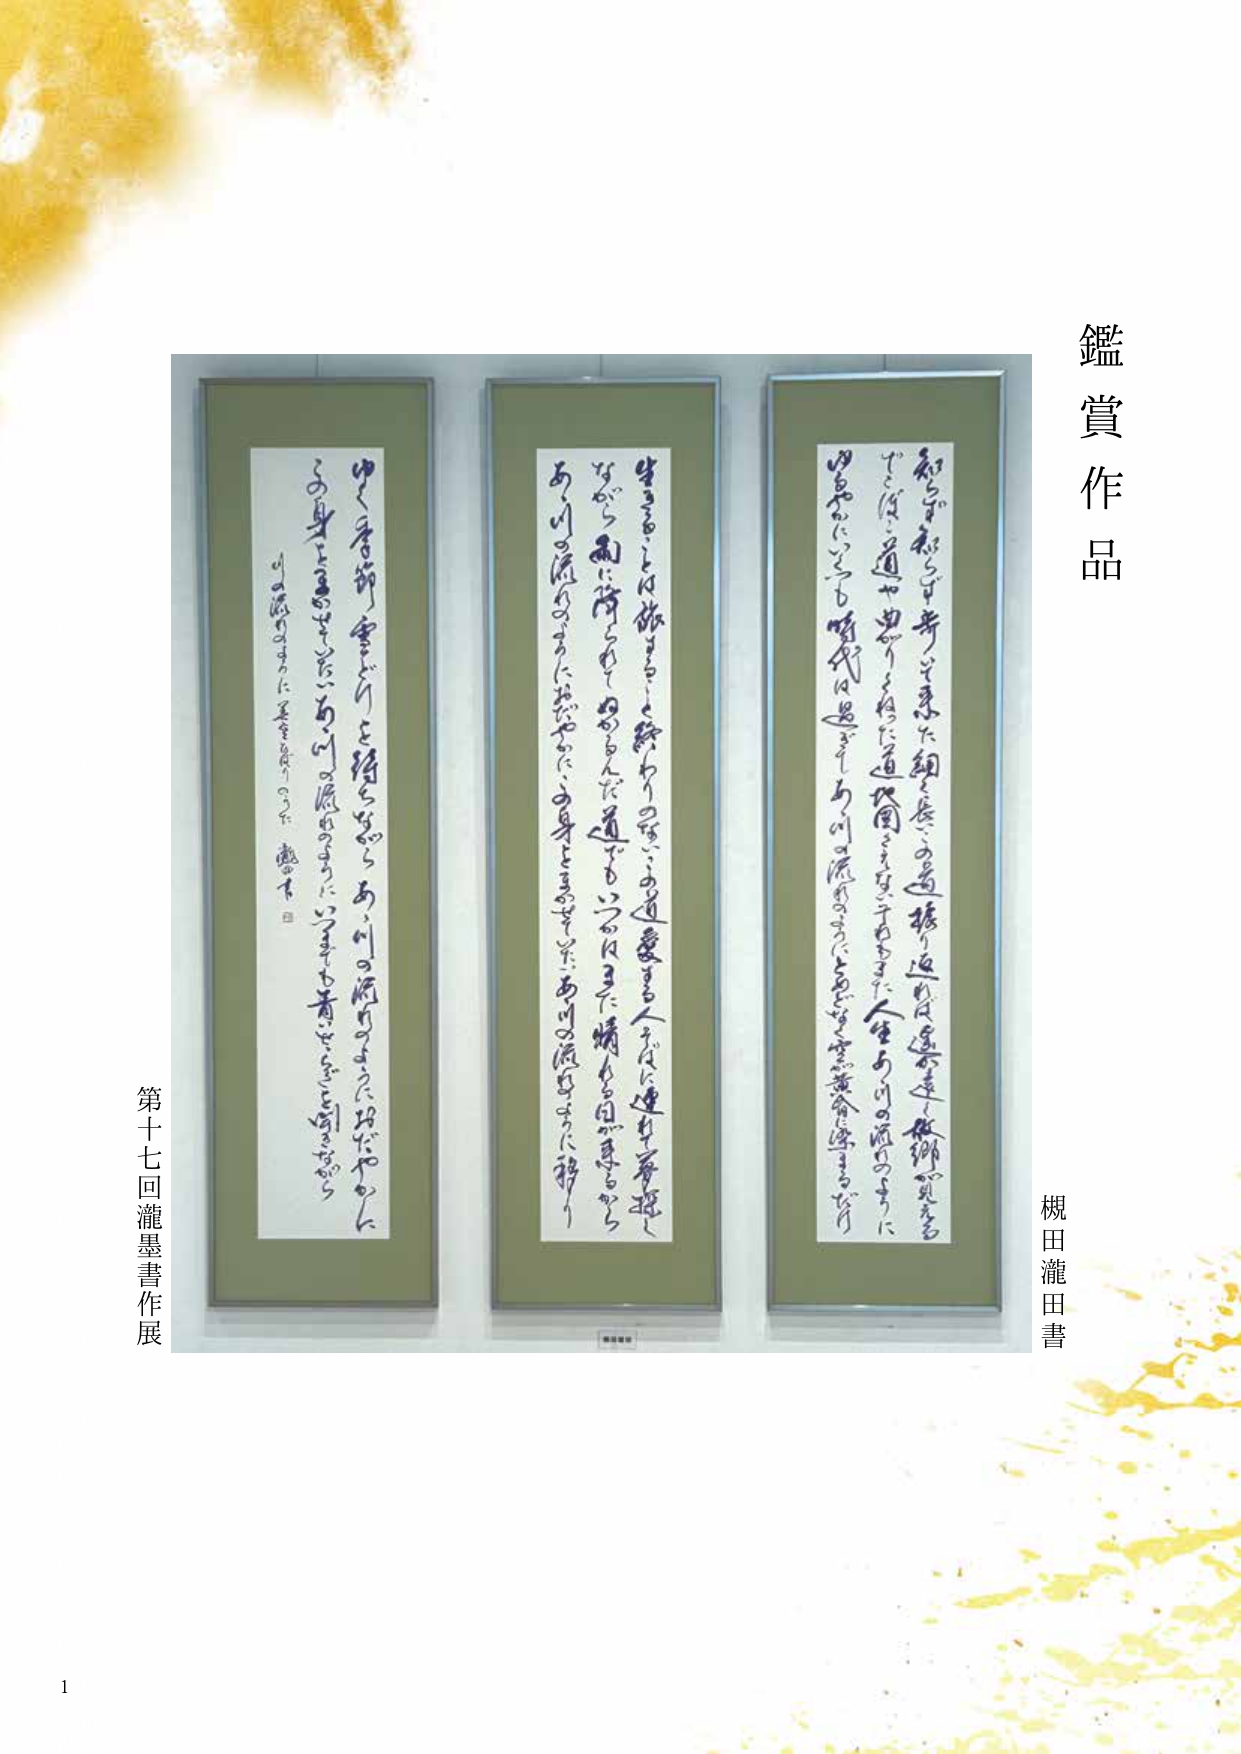 鑑賞作品
槻田瀧田書
知らず知らず歩いて来た細く長いこの道振り返れば遥か遠く故郷が見える
でこぼこ道や曲がりくねった道地図さえないそれもまた人生あゝ川の流れのように
ゆるやかにいくつも時代は過ぎてあゝ川の流れのようにとめどなく空が黄昏に染まるだけ
生きることは旅すること終わりのないこの道愛する人そばに連れて夢探し
ながら雨に降られてぬかるんだ道でもいつかはまた晴れる日が来るから
あゝ川の流れのようにおだやかにこの身をまかせていたいあゝ川の流れのように移り
ゆく季節雪どけを待ちながらあゝ川の流れのようにおだやかに
この身をまかせていたいあゝ川の流れのようにいつまでも青いせせらぎを聞きながら
川の流れのように 美空ひばりのうた 瀧田書
第十七回瀧墨書作展
1